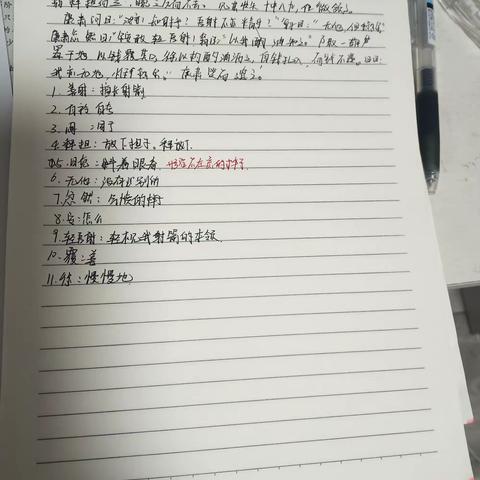 康肃问曰："汝亦知射乎？吾射不亦精乎？"翁曰："无他，但手熟尔。"
康肃忿然曰："尔安敢轻吾射！"翁曰："以我酌油知之。"乃取一葫芦
置于地，以钱覆其口，徐以杓酌油沥之，自钱孔入，而钱不湿。因曰：
"我亦无他，惟手熟尔。"康肃笑而遣之。
1. 善射：擅长射箭
2. 自矜 自夸
3. 圃：园子
4. 释担：放下担子。释放下
5. 睨：斜着眼看，形容不在意的样子
6. 无他：没有别的
7. 忿然：气愤的样子
8. 安：怎么
9. 轻吾射：轻视我射箭的本领
10. 覆：盖
11. 徐：慢慢地